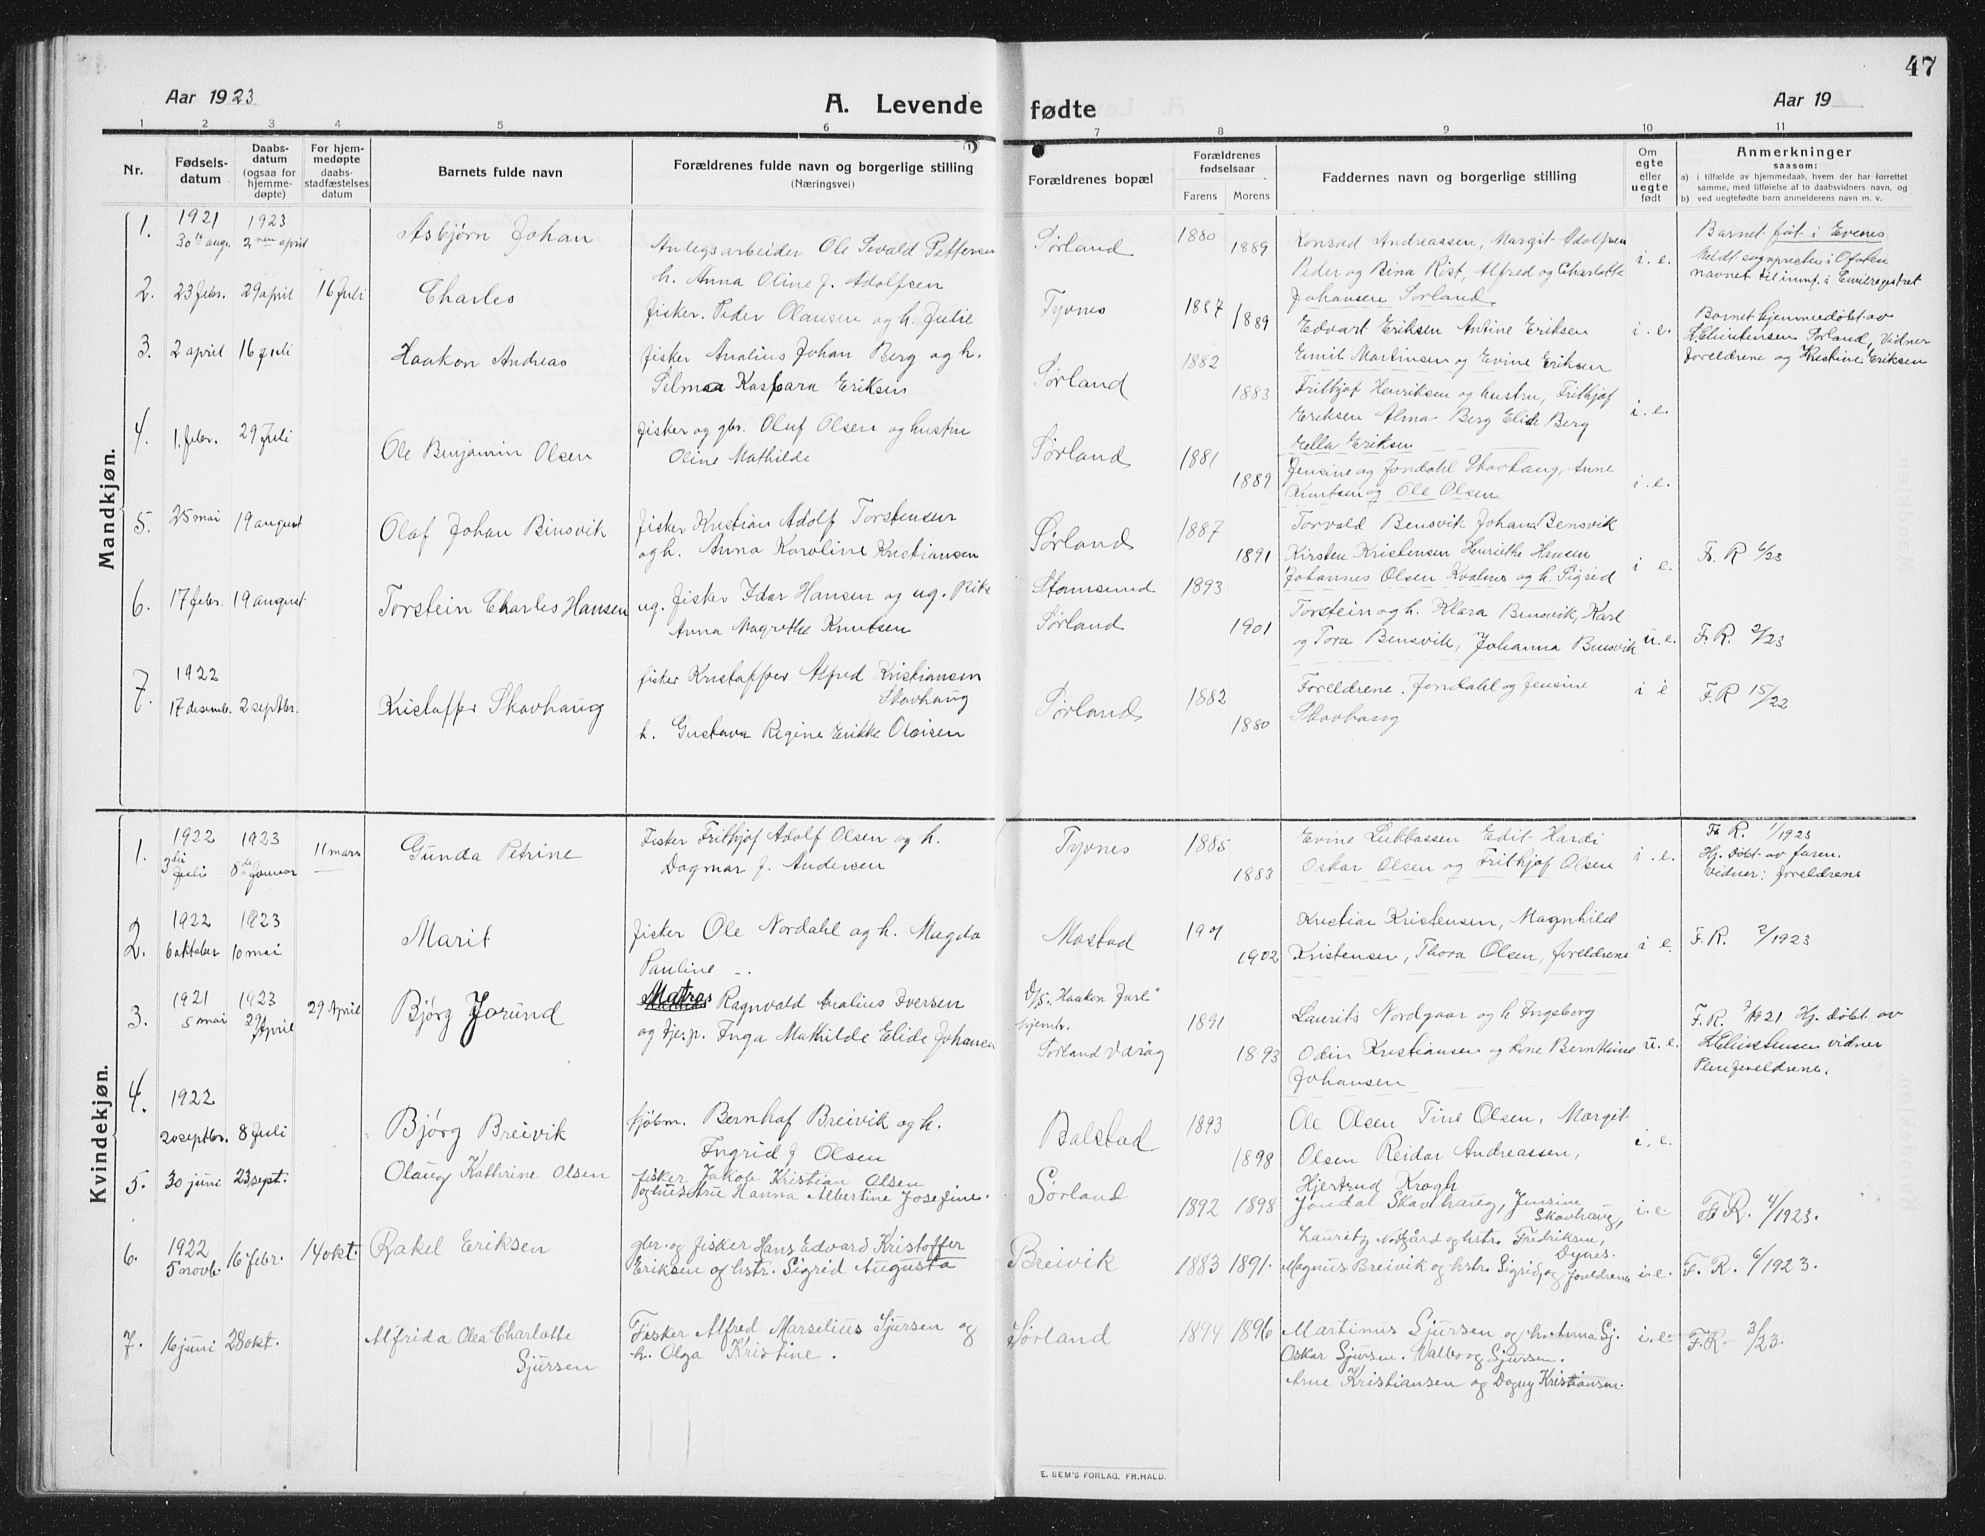 47
Aar 1923
A. Levende fødte
Aar 19
1 2 3 4 5 6 7 8 9 10 11
Nr.
Fødsels-
datum
Daabs-
datum
(ogsaa for
hjemme-
døpte)
For hjem-
medøpte
daabs-
stadfæstelses
datum
Barnets fulde navn
Forældrenes fulde navn og borgerlige stilling
(Næringsvei)
Forældrenes bopæl
Forældrenes
fødselsaar
Farens Morens
Faddernes navn og borgerlige stilling
Om
egte
eller
uegte
født
Anmerkninger
saasom:
a) i tilfælde av hjemmedaab, hvem der har forrettet
samme, med tilføielse af to daabsvidners navn, og
b) ved uegtefødte barn anmelderens navn m. v.
Mandkjøn.
1.
1921
30te aug.
1923
2nen april
Asbjørn Johan
Anlegsarbeider Ole Sevald Pettersen
h. Anna Oline f. Adolfsen
Sørland
1880
1889
Konrad Andreassen, Margit Adolfsen
Peder og Bina Röst, Alfred og Charlotte
Johansen Sørland
i. e.
Barnet føt i Evenes
Meldt sognpresten i Ofoten
2.
23 febr.
29 april
16 Juli
Charles
fisker. Peder Olausen og h. Julie
Tyvnes
1887
1889
Edvart Eriksen Antine Eriksen
Emil Martinsen og Evine Eriksen
i. e.
Barnet hjemmedøbt av
Sørland, Vidner
foreldrene og Kristine Eriksen
3.
2 april
16 Juli
Haakon Andreas
fisker Analius Johan Berg og h.
Selma Kaspara Eriksen
Sørland
1882
1883
Frithjof Henriksen og hustru, Frithjof
Eriksen Alma Berg Elide Berg
Ella Eriksen
i. e.
4.
1. febr.
29 Juli
Ole Benjamin Olsen
fisker og gbr. Oluf Olsen og hustru
Oline Mathilde
Sørland
1881
1889
Jensine og Jondahl Skavhaug, Anne
Knutsen og Ole Olsen
i. e.
5.
25 mai
19 august
Olaf Johan Binsvik
fisker Kristian Adolf Torstensen
og h. Anna Karoline Kristiansen
Sørland
1887
1891
Torvald Bensvik Johana Bensvik
Kirsten Kristensen Henriethe Hansen
Johannes Olsen Kvalnes og h. Sigrid
i e.
F. R 6/23
6.
17 febr.
19 august
Torstein Charles Hansen
ug. fisker Idar Hansen og ug. Pike
Anna Magrethe Knutsen
Stamsund
Sørland
1893
1901
Torstein og h. Klara Bensvik, Karl
og Tora Bensvik, Johanna Bensvik
u. e.
F. R. 2/23
7.
1922
17 desemb.
2 septbr.
Kristoffer Skavhaug
fisker Kristoffer Alfred Kristiansen
Skavhaug
h. Gustava Regine Erikke Olaisen
Sørland
1882
1880
Foreldrene. Jondahl og Jensine
Skavhaug
i e
F. R 15/22
Kvindekjøn.
1.
1922
3die Juli
1923
8de Januar
11 mars
Gunda Petrine
Fisker Frithjof Adolf Olsen og h.
Dagmar f. Andersen
Tyvnes
1885
1883
Evine Lubbassen Edit Hardi
Oskar Olsen og Frithjof Olsen
i. e.
F. R. 1/1923
Hj. døbt av faren.
Vidner: foreldrene
2.
1922
6 oktober
1923
10 mai
Marit
fisker Ole Nordahl og h. Magda
Pauline
Mostad
1901
1902
Kristian Kristensen, Magnhild
Kristensen, Thora Olsen, foreldrene
i e.
F. R. 2/1923
3.
1921
5 mai
1923
29 April
29 April
Bjørg Jorund
Matros Ragnvald Analius Iversen
og tje.p. Inga Mathilde Elide Johansen
D/S. "Haakon Jarl"
hjemh.
Sørland Værøy
1891
1893
Laurits Nordgaar og h Ingeborg
Odin Kristiansen og kone Bernthine
Johansen
u. e.
F. R. 7/1921 Hj. døbt av
vidner
Pleieforeldrene.
4.
1922
20 septbr.
8 Juli
Bjørg Breivik
kjøbm. Bernhof Breivik og h.
Ingrid f Olsen
Balstad
1893
1898
Ole Olsen Tine Olsen, Margit
Olsen Reidar Andreassen,
Hjertrud Krogh
i. e.
5.
30 juni
23 sept.
Olaug Kathrine Olsen
fisker Jakob Kristian Olsen
og hustru Hanna Albertine Josefine.
Sørland
1892 1898
Jondal Skavhaug, Jensine
Skavhaug,
Lauritz Nodgård og hstr. Fredriksen,
Dynes.
i. e.
F. R. 4/1923.
6.
1922
5 novb.
16 febr.
14 okt.
Rakel Eriksen
gbr. og fisker Hans Edvard Kristoffer
Eriksen og hstr. Sigrid Augusta
Breivik
1883 1891.
Magnus Breivik og hstr. Sigrid, og foreldrene
i. e.
F. R. 6/1923.
7.
16 juni
28 okt.
Alfrida Olea Charlotte
Sjursen
Fisker Alfred Marselius Sjursen og
h. Olga Kristine.
Sørland
1894 1896
Martinus Sjursen og h. Anna Sj.
Oskar Sjursen. Valborg Sjursen.
Arne Kristiansen og Dagny Kristiansen.
i. e.
F. R. 3/23.
E. SEM'S FORLAG, FR.HALD.